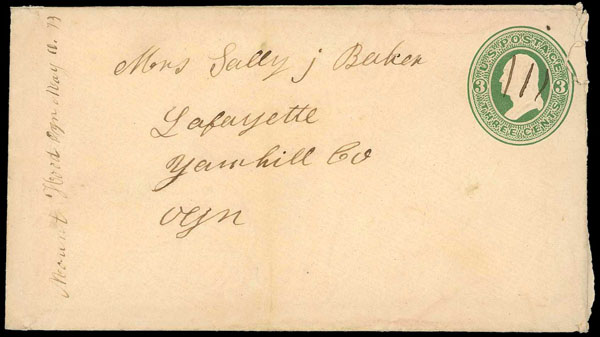 Mrs Sally j Baker
Lafayette
Yamhill Co
Ogn
Mount Hood Ogn May
U.S. POSTAGE
3 3
THREE CENTS